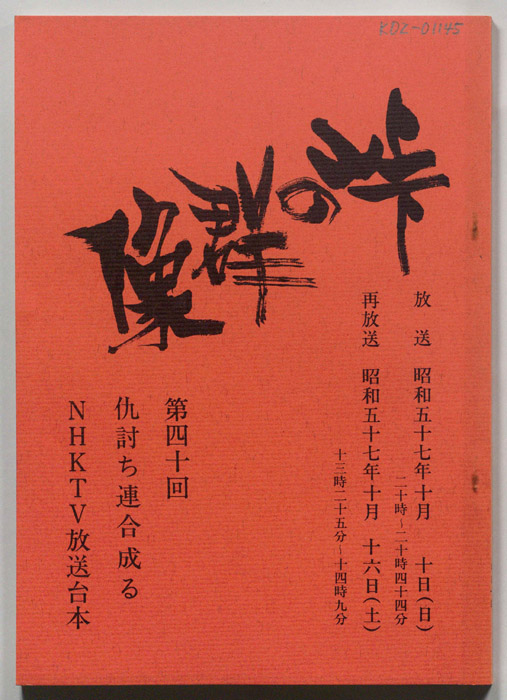 KDZ-01145
峠の群像
放送 昭和五十七年十月 十日(日)
二十時〜二十時四十四分
再放送 昭和五十七年十月 十六日(土)
十三時二十五分〜十四時九分
第四十回
仇討ち連合成る
NHKTV放送台本